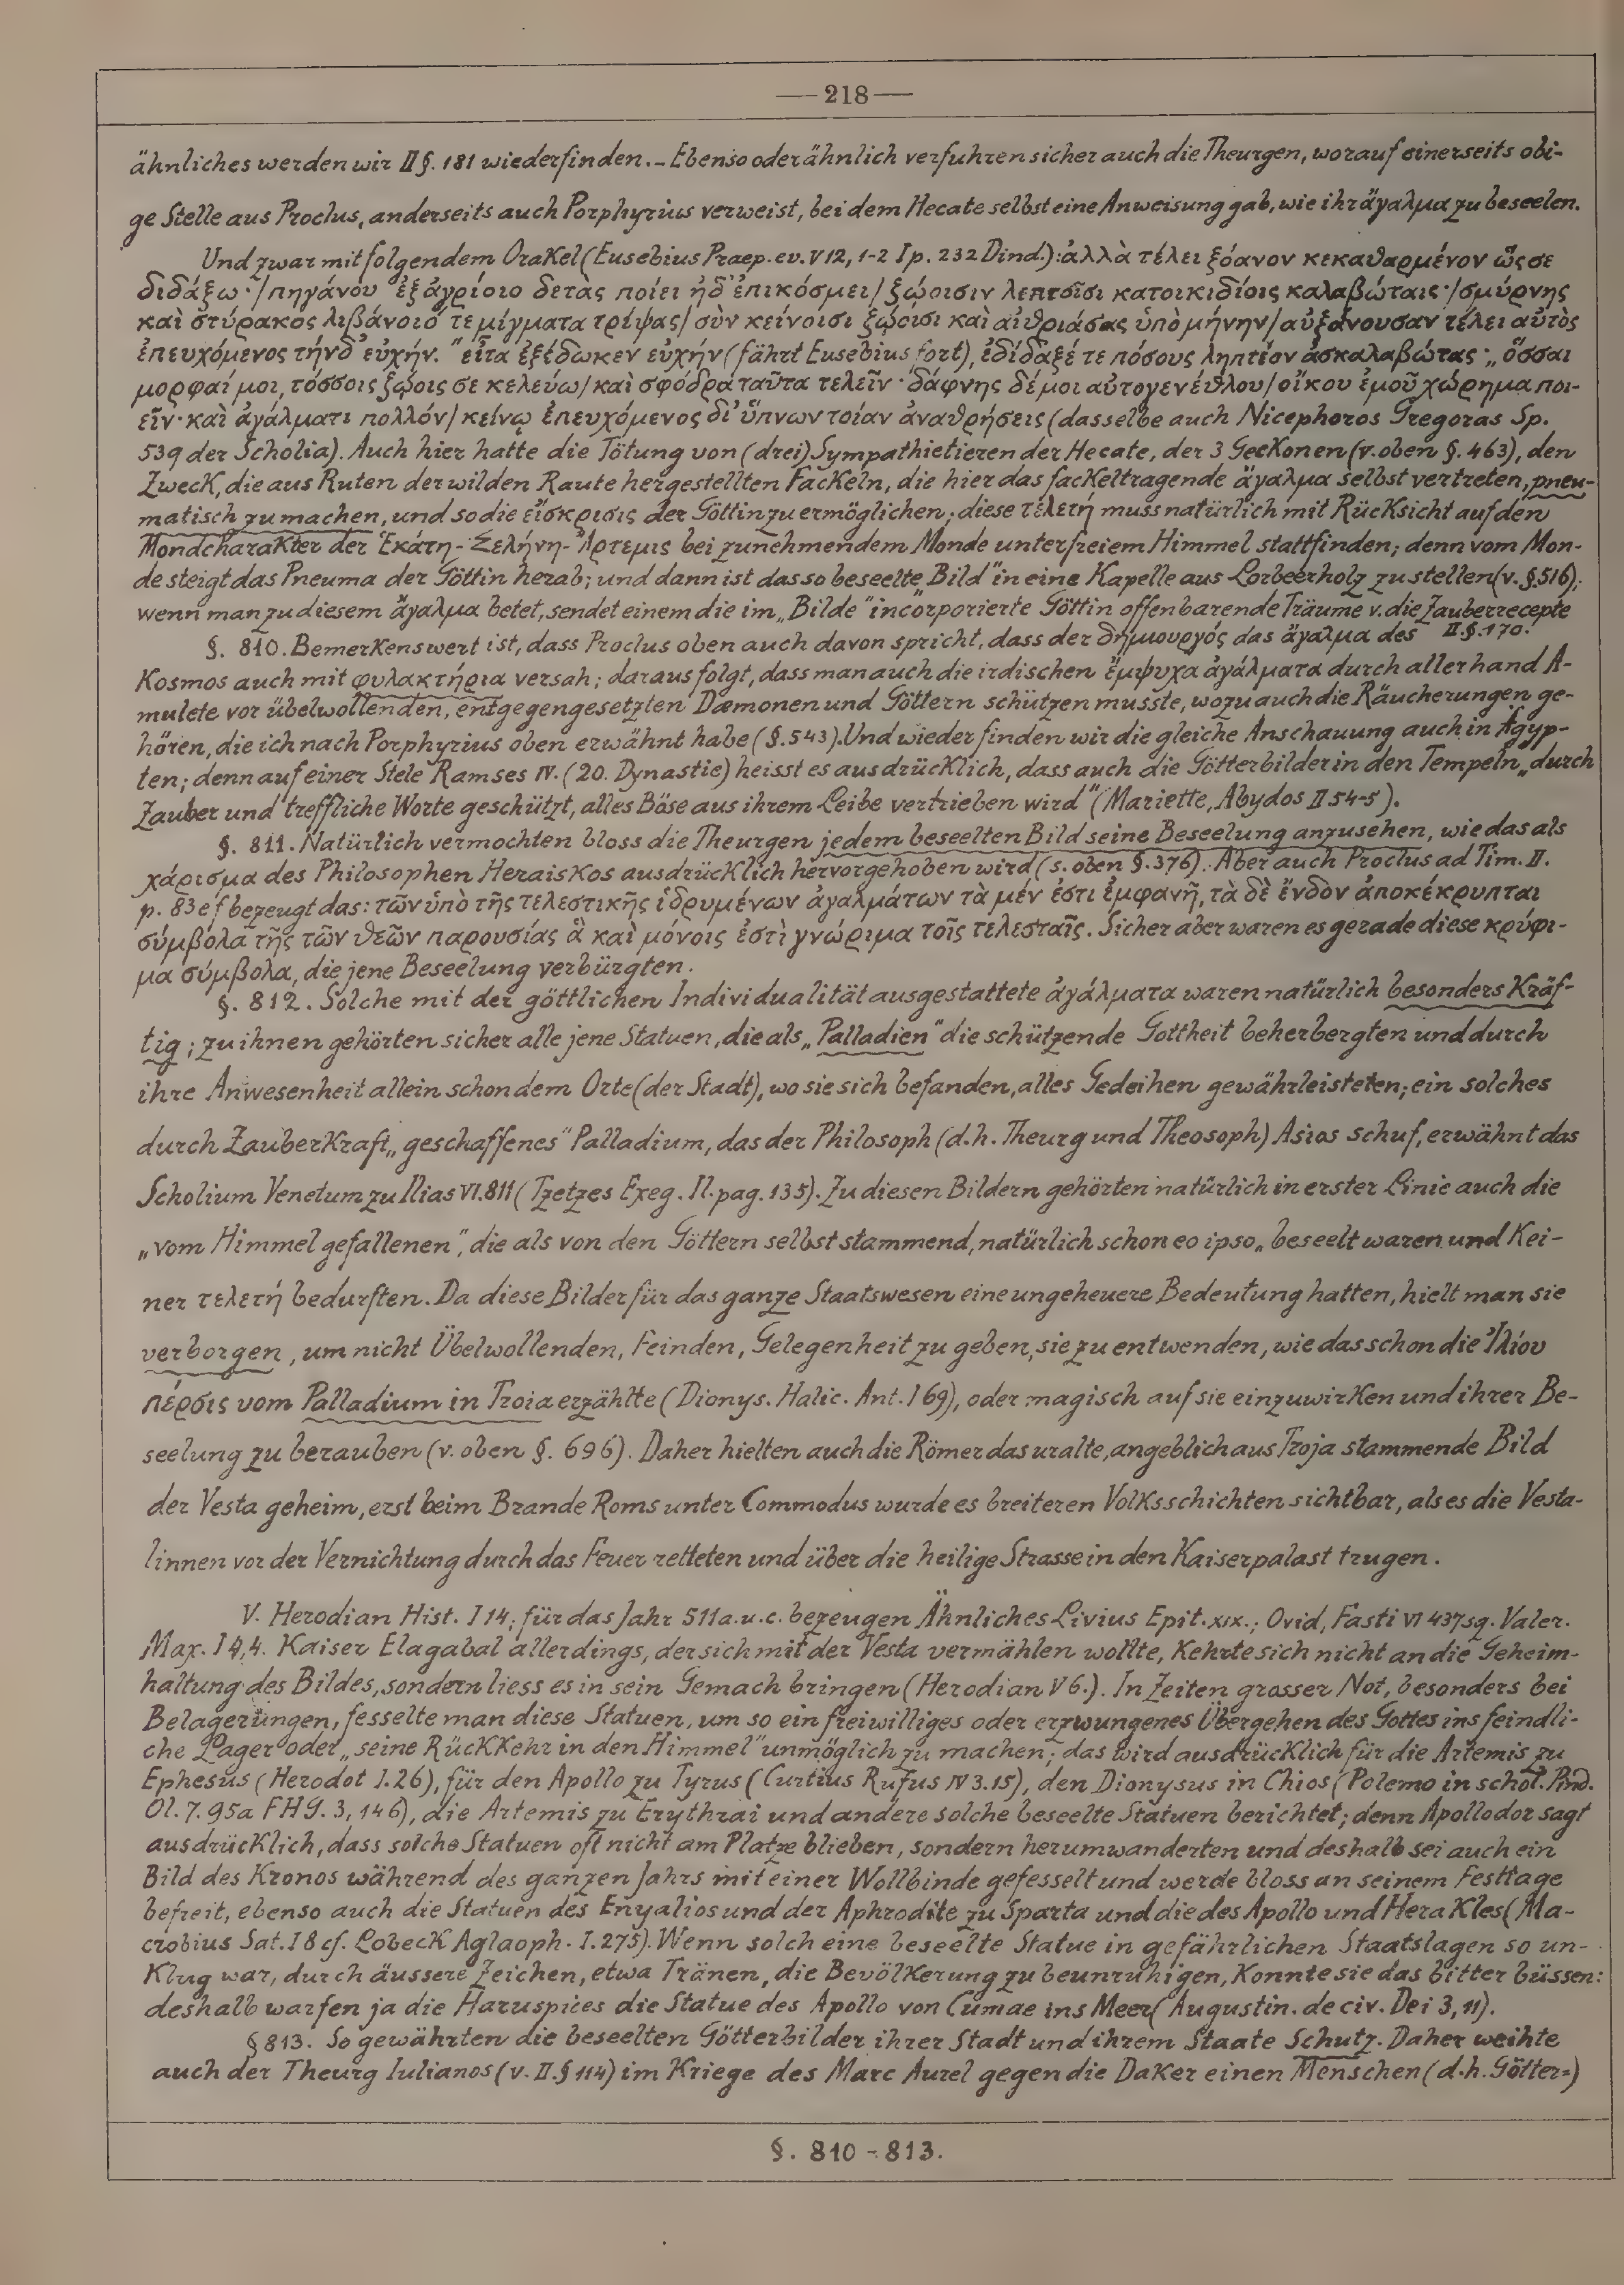 —218—
ähnliches werden wir II §. 181 wiederfinden. – Ebenso oder ähnlich verfuhren sicher auch die Theurgen, worauf einerseits obi-
ge Stelle aus Proclus, anderseits auch Porphyrius verweist, bei dem Hecate selbst eine Anweisung gab, wie ihr ἄγαλμα zu beseelen.
Und zwar mit folgendem Orakel (Eusebius Praep. ev. V 12, 1-2 I p. 232 Dind.): ἀλλὰ τέλει ξόανον κεκαθαρμένον ὥς σε
διδάξω·/πηγάνου ἐξ ἀγρίοιο δετας ποίει ἠδ' ἐπικόσμει/ ξῴοισιν λεπτοῖσι κατοικιδίοις καλαβώταις·/σμύρνης
καὶ στύρακος λιβάνοιό τε μίγματα τρίψας/ σὺν κείνοισι ξῴοισι καὶ αἰθριάσας ὑπὸ μήνην/ αὐξάνουσαν τέλει αὐτὸς
ἐπευχόμενος τήνδ' εὐχήν." εἶτα ἐξέδωκεν εὐχήν (fährt Eusebius fort), ἐδίδαξέ τε πόσους ληπτέον ἀσκαλαβώτας·„ ὅσσαι
μορφαί μοι, τόσσοις ξῴοις σε κελεύω/ καὶ σφόδρα ταῦτα τελεῖν· δάφνης δέ μοι αὐτογενέθλου/ οἴκου ἐμοῦ χώρημα ποι-
εῖν· καὶ ἀγάλματι πολλόν/ κείνῳ ἐπευχόμενος δι' ὕπνων τοίαν ἀναθρήσεις (dasselbe auch Nicephoros Gregoras Sp.
539 der Scholia). Auch hier hatte die Tötung von (drei) Sympathietieren der Hecate, der 3 Geckonen (v. oben §. 463), den
Zweck, die aus Ruten der wilden Raute hergestellten Fackeln, die hier das fackeltragende ἄγαλμα selbst vertreten, pneu-
matisch zu machen, und so die εἴσκρισις der Göttin zu ermöglichen; diese τελετή muss natürlich mit Rücksicht auf den
Mondcharakter der Ἑκάτη-Σελήνη-Ἄρτεμις bei zunehmendem Monde unter freiem Himmel stattfinden; denn vom Mon-
de steigt das Pneuma der Göttin herab; und dann ist das so beseelte „Bild" in eine Kapelle aus Lorbeerholz zu stellen (v. §. 516);
wenn man zu diesem ἄγαλμα betet, sendet einem die im „Bilde" incorporierte Göttin offenbarende Träume v. die Zauberrecepte
II §. 170.
§. 810. Bemerkenswert ist, dass Proclus oben auch davon spricht, dass der δημιουργός das ἄγαλμα des
Kosmos auch mit φυλακτήρια versah; daraus folgt, dass man auch die irdischen ἔμψυχα ἀγάλματα durch allerhand A-
mulete vor übelwollenden, entgegengesetzten Dæmonen und Göttern schützen musste, wozu auch die Räucherungen ge-
hören, die ich nach Porphyrius oben erwähnt habe (§. 543). Und wieder finden wir die gleiche Anschauung auch in Ägyp-
ten; denn auf einer Stele Ramses IV. (20. Dynastie) heisst es ausdrücklich, dass auch die Götterbilder in den Tempeln „durch
Zauber und treffliche Worte geschützt, alles Böse aus ihrem Leibe vertrieben wird" (Mariette, Abydos II 54-5).
§. 811. Natürlich vermochten bloss die Theurgen jedem beseelten Bild seine Beseelung anzusehen, wie das als
χάρισμα des Philosophen Heraiskos ausdrücklich hervorgehoben wird (s. oben §. 376). Aber auch Proclus ad Tim. II.
p. 83 ef bezeugt das: τῶν ὑπὸ τῆς τελεστικῆς ἱδρυμένων ἀγαλμάτων τὰ μέν ἐστι ἐμφανῆ, τὰ δὲ ἔνδον ἀποκέκρυπται
σύμβολα τῆς τῶν θεῶν παρουσίας ἃ καὶ μόνοις ἐστὶ γνώριμα τοῖς τελεσταῖς. Sicher aber waren es gerade diese κρύφι-
μα σύμβολα, die jene Beseelung verbürgten.
§. 812. Solche mit der göttlichen Individualität ausgestattete ἀγάλματα waren natürlich besonders kräf-
tig; zu ihnen gehörten sicher alle jene Statuen, die als „Palladien" die schützende Gottheit beherbergten und durch
ihre Anwesenheit allein schon dem Orte (der Stadt), wo sie sich befanden, alles Gedeihen gewährleisteten; ein solches
durch Zauberkraft „geschaffenes" Palladium, das der Philosoph (d.h. Theurg und Theosoph) Asios schuf, erwähnt das
Scholium Venetum zu Ilias VI. 811 (Tzetzes Exeg. Il. pag. 135). Zu diesen Bildern gehörten natürlich in erster Linie auch die
„vom Himmel gefallenen", die als von den Göttern selbst stammend, natürlich schon eo ipso „beseelt waren und kei-
ner τελετή bedurften. Da diese Bilder für das ganze Staatswesen eine ungeheuere Bedeutung hatten, hielt man sie
verborgen, um nicht Übelwollenden, Feinden, Gelegenheit zu geben, sie zu entwenden, wie das schon die Ἰλίου
πέρσις vom Palladium in Troia erzählte (Dionys. Halic. Ant. I 69), oder magisch auf sie einzuwirken und ihrer Be-
seelung zu berauben (v. oben §. 696). Daher hielten auch die Römer das uralte, angeblich aus Troja stammende Bild
der Vesta geheim, erst beim Brande Roms unter Commodus wurde es breiteren Volksschichten sichtbar, als es die Vesta-
linnen vor der Vernichtung durch das Feuer retteten und über die heilige Strasse in den Kaiserpalast trugen.
V. Herodian Hist. I 14; für das Jahr 511 a.u.c. bezeugen Ähnliches Livius Epit. XIX.; Ovid, Fasti VI 437 sq. Valer.
Max. I 4,4. Kaiser Elagabal allerdings, der sich mit der Vesta vermählen wollte, kehrte sich nicht an die Geheim-
haltung des Bildes, sondern liess es in sein Gemach bringen (Herodian V 6.). In Zeiten grosser Not, besonders bei
Belagerungen, fesselte man diese Statuen, um so ein freiwilliges oder erzwungenes Übergehen des Gottes ins feindli-
che Lager oder „seine Rückkehr in den Himmel" unmöglich zu machen; das wird ausdrücklich für die Artemis zu
Ephesus (Herodot I. 26), für den Apollo zu Tyrus (Curtius Rufus IV 3.15), den Dionysus in Chios (Polemo in schol. Pind.
Ol. 7. 95a FHG. 3, 146), die Artemis zu Erythrai und andere solche beseelte Statuen berichtet; denn Apollodor sagt
ausdrücklich, dass solche Statuen oft nicht am Platze blieben, sondern herumwanderten und deshalb sei auch ein
Bild des Kronos während des ganzen Jahrs mit einer Wollbinde gefesselt und werde bloss an seinem Festtage
befreit, ebenso auch die Statuen des Enyalios und der Aphrodite zu Sparta und die des Apollo und Herakles (Ma-
crobius Sat. I 8 cf. Lobeck Aglaoph. I. 275). Wenn solch eine beseelte Statue in gefährlichen Staatslagen so un-
klug war, durch äussere Zeichen, etwa Tränen, die Bevölkerung zu beunruhigen, konnte sie das bitter büssen:
deshalb warfen ja die Haruspices die Statue des Apollo von Cumae ins Meer (Augustin. de civ. Dei 3, 11).
§ 813. So gewährten die beseelten Götterbilder ihrer Stadt und ihrem Staate Schutz. Daher weihte
auch der Theurg Iulianos (v. II. § 114) im Kriege des Marc Aurel gegen die Daker einen Menschen (d.h. Götter=)
§. 810 - 813.